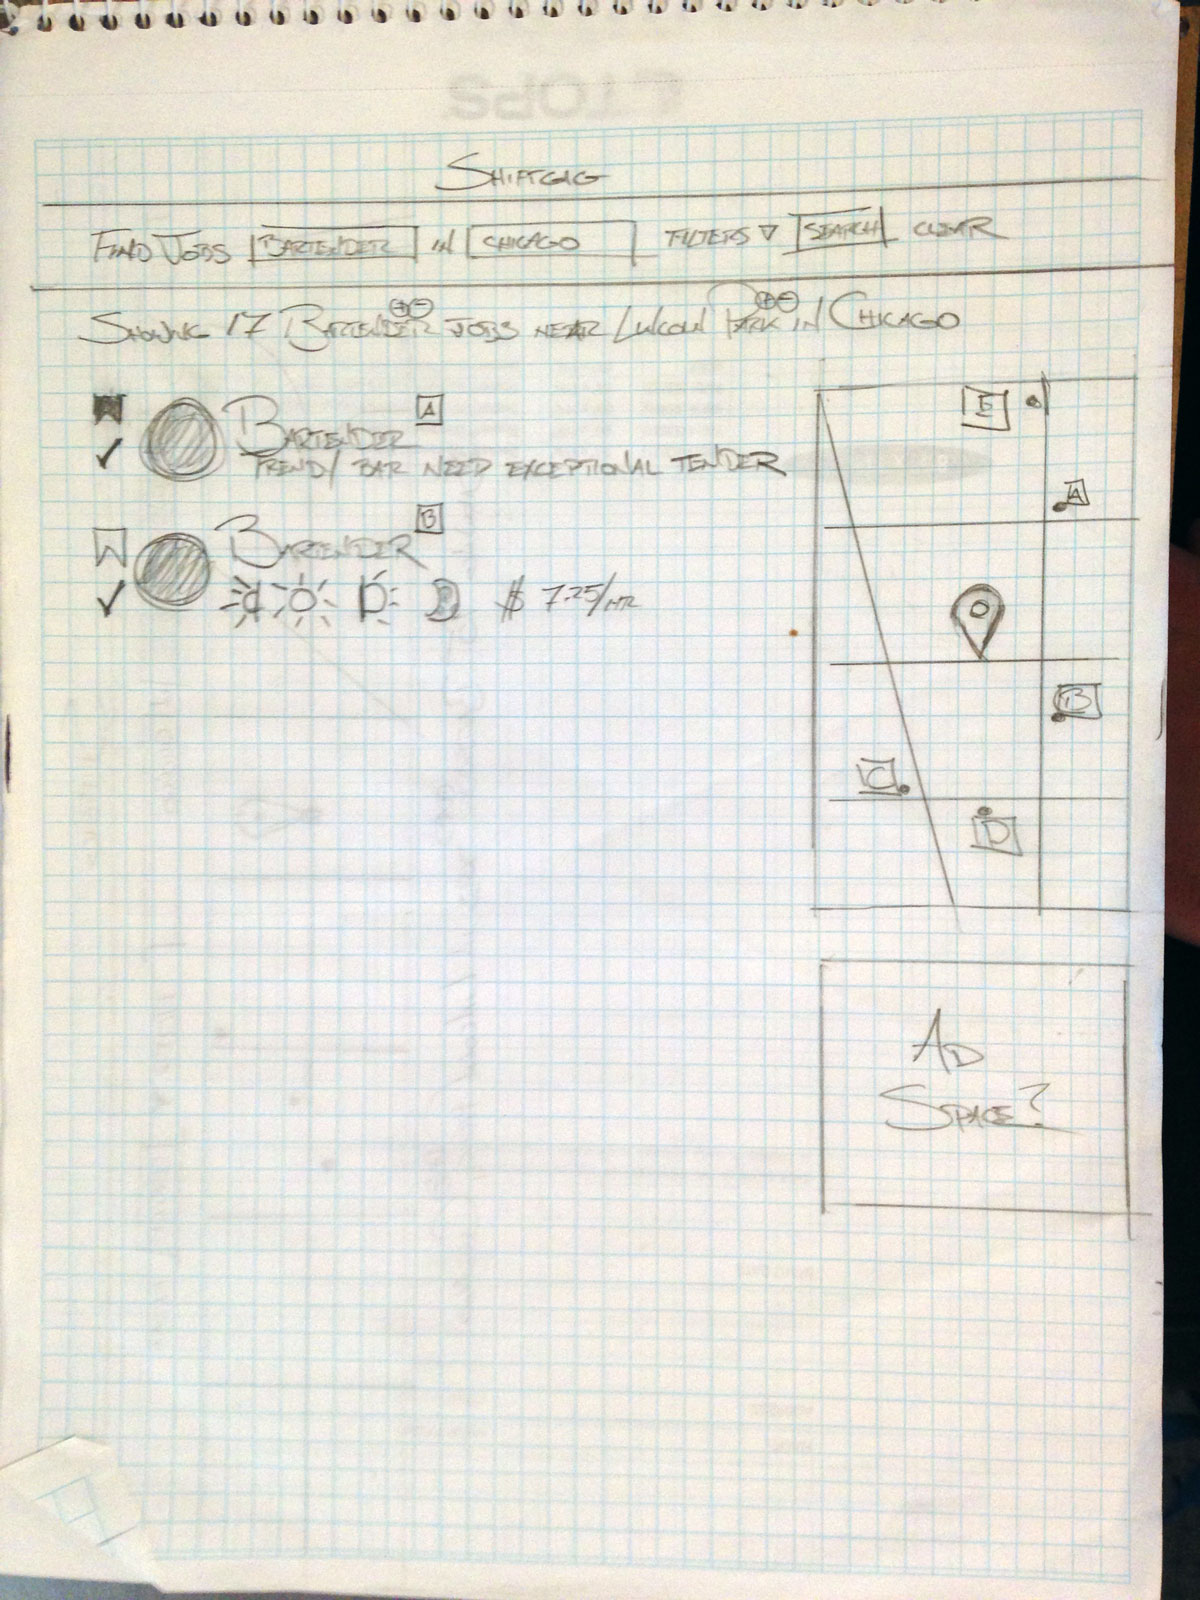 TOPS
SHIFTGIG
FIND JOBS BARTENDER IN CHICAGO FILTERS SEARCH CLEAR
SHOWING 17 BARTENDER JOBS NEAR LINCOLN PARK IN CHICAGO
BARTENDER A
TRENDY BAR NEED EXCEPTIONAL TENDER
BARTENDER B
$ 7.25/HR
E
A
B
C
D
AD
SPACE?